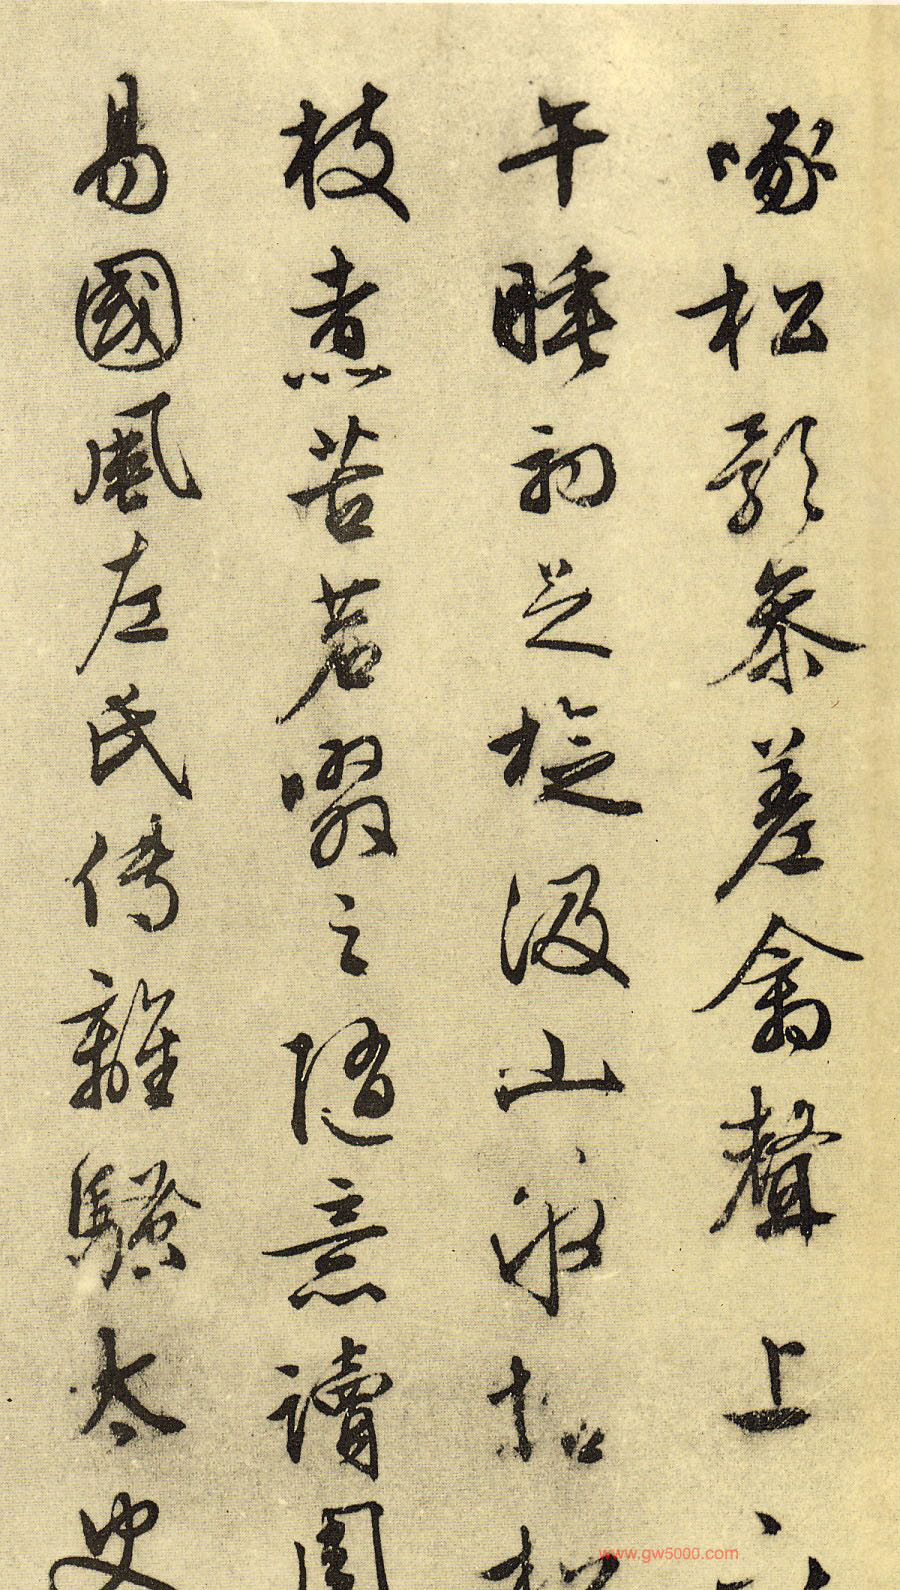 啄松影參差禽聲上
午睡初足旋汲山泉拾松
枝煮苦茗啜之隨意讀周
易國風左氏傳離騷太史
www.gw5000.com